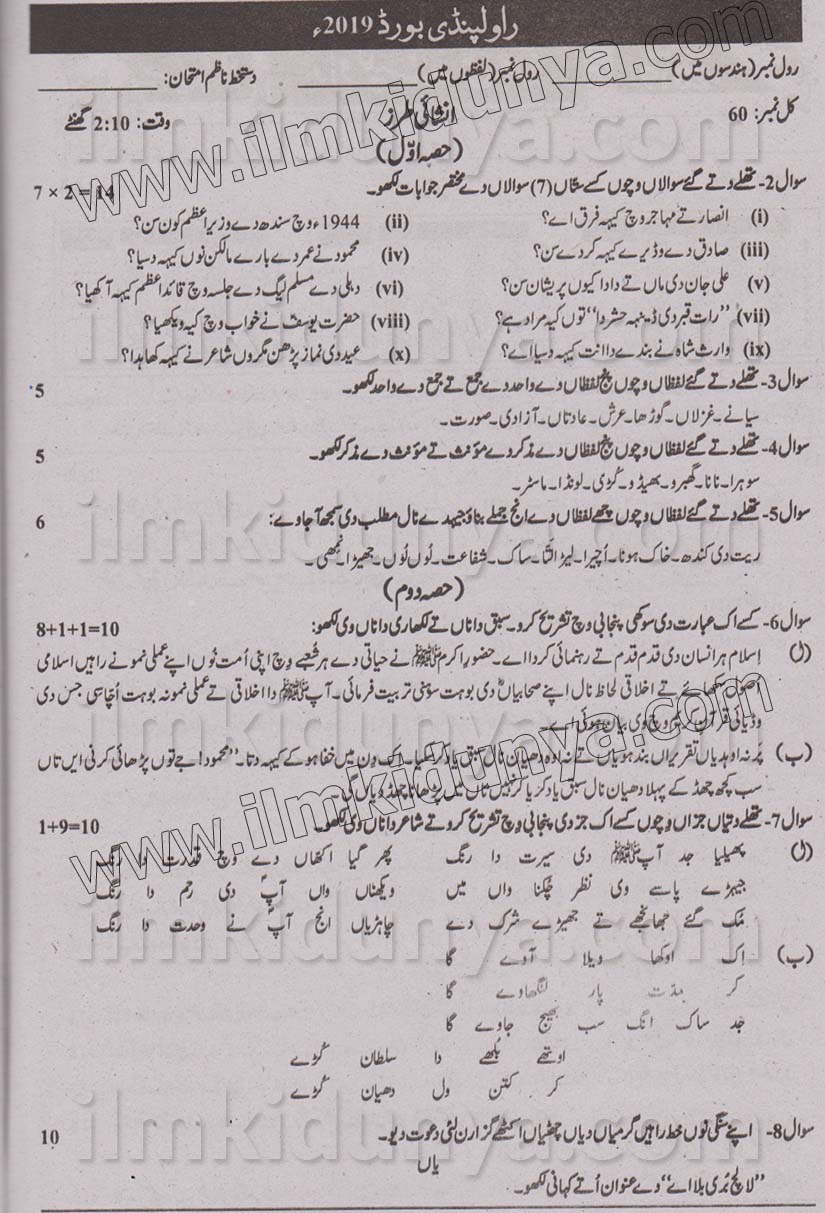 راولپنڈی بورڈ 2019ء
رول نمبر (ہندسوں میں) ____________ رول نمبر (لفظوں میں) ____________ دستخط ناظم امتحان: ____________
کل نمبر: 60 انشائی طرز وقت: 2:10 گھنٹے
(حصہ اوّل)
سوال 2- تھلے دتے گئے سوالاں وچوں کسے ستاں (7) سوالاں دے مختصر جوابات لکھو۔ 7 × 2 = 14
(i) انصار تے مہاجر وچ کیہہ فرق اے؟ (ii) 1944ء وچ سندھ دے وزیراعظم کون سن؟
(iii) صادق دے وڈیرے کیہہ کردے سن؟ (iv) محمود نے عمر دے بارے مالکن نوں کیہہ دسیا؟
(v) علی جان دی ماں تے دادا کیوں پریشان سن؟ (vi) دہلی دے مسلم لیگ دے جلسہ وچ قائداعظم کیہہ آکھیا؟
(vii) "رات قبر دی ڈینہہ حشر دا" توں کیہ مراد ہے؟ (viii) حضرت یوسفؑ نے خواب وچ کیہ ویکھیا؟
(ix) وارث شاہ نے بندے دا انت کیہہ دسیا اے؟ (x) عید دی نماز پڑھن مگروں شاعر نے کیہہ کھاہدا؟
سوال 3- تھلے دتے گئے لفظاں وچوں پنج لفظاں دے واحد دے جمع تے جمع دے واحد لکھو۔ 5
سیانے۔ غزلاں۔ گوڑھا۔ عرش۔ عادتاں۔ آزادی۔ صورت۔
سوال 4- تھلے دتے گئے لفظاں وچوں پنج لفظاں دے مذکر دے مؤنث تے مؤنث دے مذکر لکھو۔ 5
سوہرا۔ نانا۔ گھبرو۔ بھیڈو۔ کُڑی۔ لونڈا۔ ماسٹر۔
سوال 5- تھلے دتے گئے لفظاں وچوں چھے لفظاں دے انج جملے بناؤ جیہدے نال مطلب دی سمجھ آ جاوے: 6
ریت دی کندھ۔ خاک ہونا۔ اُچیرا۔ لیڑا لتّا۔ ساک۔ شفاعت۔ لُوں لُوں۔ جھیڑا۔ نِمھی۔
(حصہ دوم)
سوال 6- کسے اک عبارت دی سوکھی پنجابی وچ تشریح کرو۔ سبق دا ناں تے لکھاری دا ناں وی لکھو: 8+1+1=10
(ا) اسلام ہر انسان دی قدم قدم تے رہنمائی کردا اے۔ حضورِ اکرم ﷺ نے حیاتی دے ہر شعبے وچ اپنی اُمت نُوں اپنے عملی نمونے راہیں اسلامی
اصول سکھائے تے اخلاقی لحاظ نال اپنے صحابیاںؓ دی بوہت سوہنی تربیت فرمائی۔ آپ ﷺ دا اخلاقی تے عملی نمونہ بوہت اُچا سی جس دی
وڈیائی قرآن وچ وی بیان ہوئی اے۔
(ب) پر نہ اوہدیاں تقریراں بند ہویاں تے نہ اوہ دھیان نال سبق یاد کر سکیا۔ اک دن میں خفا ہو کے کہہ دتا۔ "محمود! جے توں پڑھائی کرنی ایں تاں
سب کچھ چھڈ کے پہلا دھیان نال سبق یاد کریا کر نہیں تاں میں پڑھانا چھڈ دیاں گی۔
سوال 7- تھلے دتیاں جزاں وچوں کسے اک جز دی پنجابی وچ تشریح کرو تے شاعر دا ناں وی لکھو۔ 1+9=10
(ا) پھیلیا جد آپ ﷺ دی سیرت دا رنگ پھر گیا اکھاں دے وچ قدرت دا رنگ
جیہڑے پاسے وی نظر چُکنا واں میں ویکھناں واں آپؐ دی رحم دا رنگ
مُک گئے جھانجھے تے جھیڑے شرک دے چاہڑیاں انج آپؐ نے وحدت دا رنگ
(ب) اِک اوکھا ویلا آوے گا
کر مدّت پار لنگھاوے گا
جد ساک انگ سب بھیج جاوے گا
اوتھے بُکھے دا سلطان کُڑے
کر کتن ول دھیان کُڑے
سوال 8- اپنے سنگی نوں خط راہیں گرمیاں دیاں چھٹیاں اکٹھے گزارن لئی دعوت دیو۔ 10
یاں
"لالچ بُری بلا اے" دے عنوان اُتے کہانی لکھو۔
www.ilmkidunya.com
www.ilmkidunya.com
ilmkidunya.com